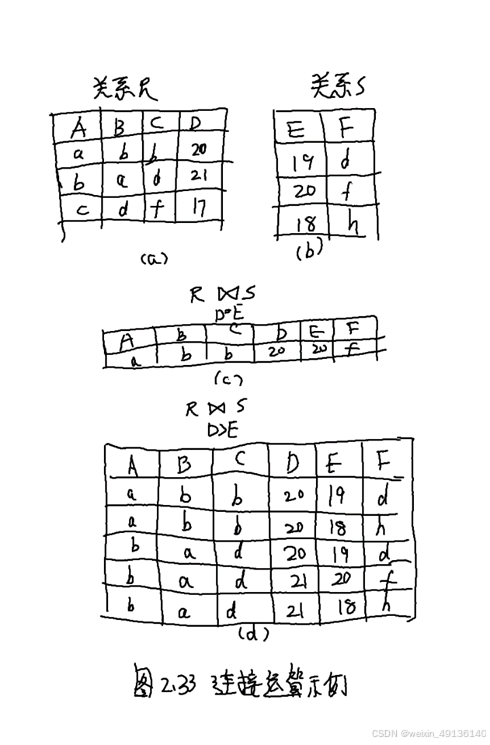 关系R 关系S
A B C D
a b b 20
b a d 21
c d f 17
(a)
E F
19 d
20 f
18 h
(b)
R ⋈ S
D=E
A B C D E F
a b b 20 20 f
(c)
R ⋈ S
D>E
A B C D E F
a b b 20 19 d
a b b 20 18 h
b a d 20 19 d
b a d 21 20 f
b a d 21 18 h
(d)
图2.33 连接运算示例
CSDN @weixin_49136140